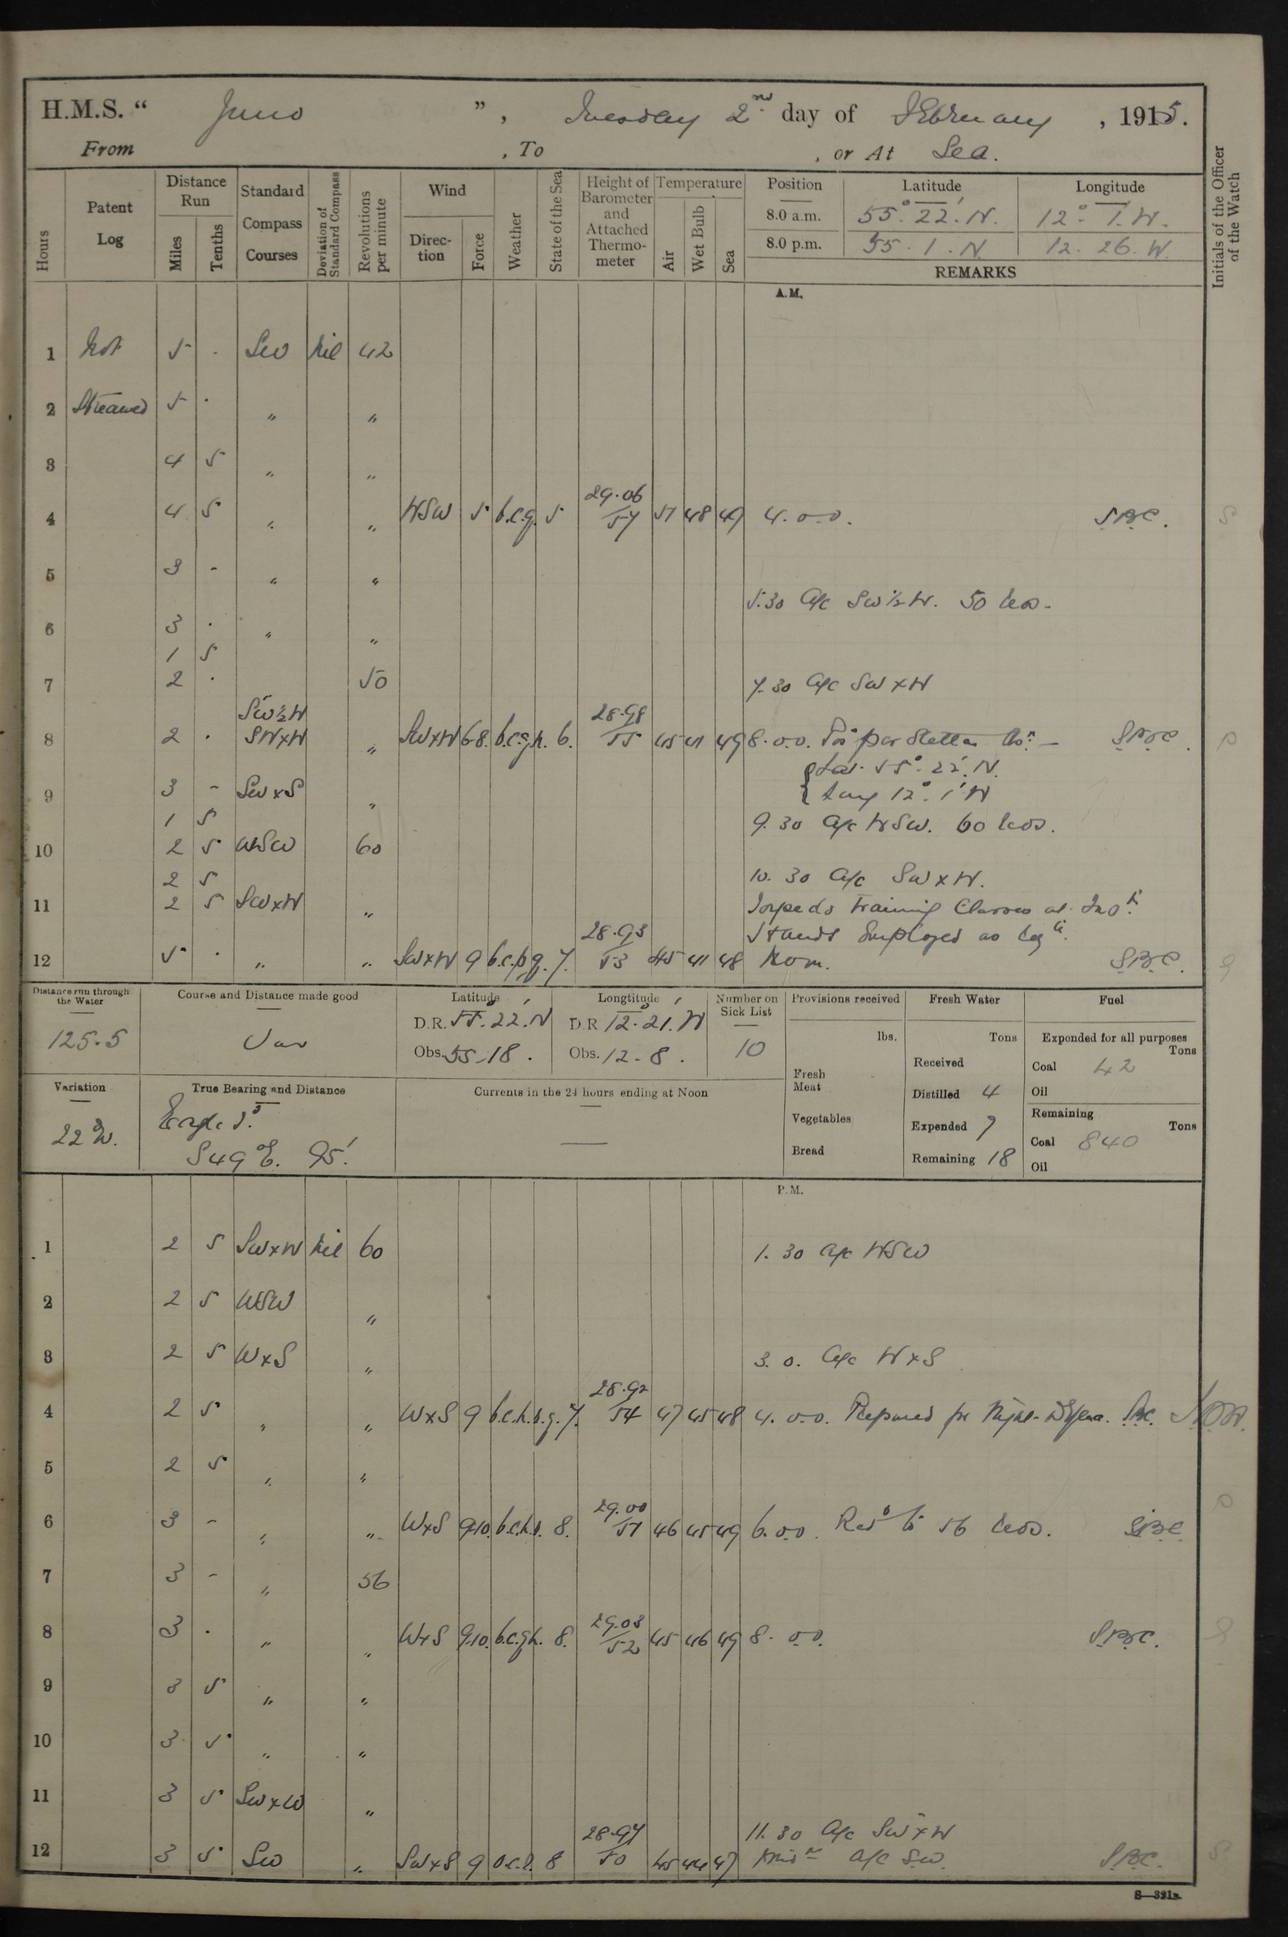 H.M.S. “ Juno ” , Tuesday 2nd day of February , 1915.
From , To , or At Sea.
Hours
Patent Log
Distance Run
Miles
Tenths
Standard Compass Courses
Deviation of Standard Compass
Revolutions per minute
Wind
Direction
Force
Weather
State of the Sea
Height of Barometer and Attached Thermometer
Temperature
Air
Wet Bulb
Sea
Position Latitude Longitude
8.0 a.m. 55° 22' N. 12° 1' W.
8.0 p.m. 55. 1. N. 12. 26. W.
REMARKS
Initials of the Officer of the Watch
A.M.
1 Not 5 . SW Nil 42
2 Streamed 5 . „ „
3 4 5 „ „
29.06
4 4 5 „ „ WSW 5 b.c.q. 5 57 51 48 49 4.0.0. S.B.C.
5 3 - „ „
5.30 A/c SW½W. 50 revs.
6 3 . „ „
1 5
7 2 . 50 7.30 A/c SWxW
SW½W 28.98
8 2 . SWxW „ SWxW 6.8. b.c.q.h. 6. 55 45 41 49 8.0.0. S.B.C.
Lat. 55° 22' N.
9 3 - SWxS „ Long 12° 1' W
1 5 9.30 A/c WSW. 60 revs.
10 2 5 WSW 60
2 5 10.30 A/c SWxW.
11 2 5 SWxW „ Torpedo training Classes at Inst.
28.93 Hands Employed as reqte.
12 5 . „ „ SWxW 9 b.c.p.q. 7. 53 45 41 48 Noon. S.B.C.
Distance run through the Water
125.5
Course and Distance made good
Var
Latitude
D.R. 55. 22. N
Obs. 55-18.
Longtitude
D.R 12. 21. W
Obs. 12-8.
Number on Sick List
10
Provisions received
lbs.
Fresh Meat
Vegetables
Bread
Fresh Water
Tons
Received
Distilled 4
Expended 7
Remaining 18
Fuel
Expended for all purposes
Tons
Coal 42
Oil
Remaining
Tons
Coal 840
Oil
Variation
22° W.
True Bearing and Distance
Eagle I.
S49°E. 95'.
Currents in the 24 hours ending at Noon
P.M.
1 2 5 SWxW Nil 60 1.30 A/c WSW
2 2 5 WSW „
3 2 5 WxS „ 3.0. A/c WxS
28.92
4 2 5 „ „ WxS 9 7. 54 47 45 48 4.0.0. Prepared for Night Defence.
5 2 5 „ „
29.00
6 3 - „ „ WxS 9.10. 8. 51 46 45 49 6.0.0. Red to 56 revs. S.B.C.
7 3 - „ 56
29.03
8 3 . „ „ WxS 9.10. b.c.q.h. 8. 52 45 46 49 8.0.0. S.B.C.
9 3 5 „ „
10 3 5 „ „
11 3 5 SWxW „
28.97 11.30 A/c SWxW
12 3 5 SW „ SWxS 9 8 50 45 44 47 Midt A/c SW. S.B.C.
S—321a.